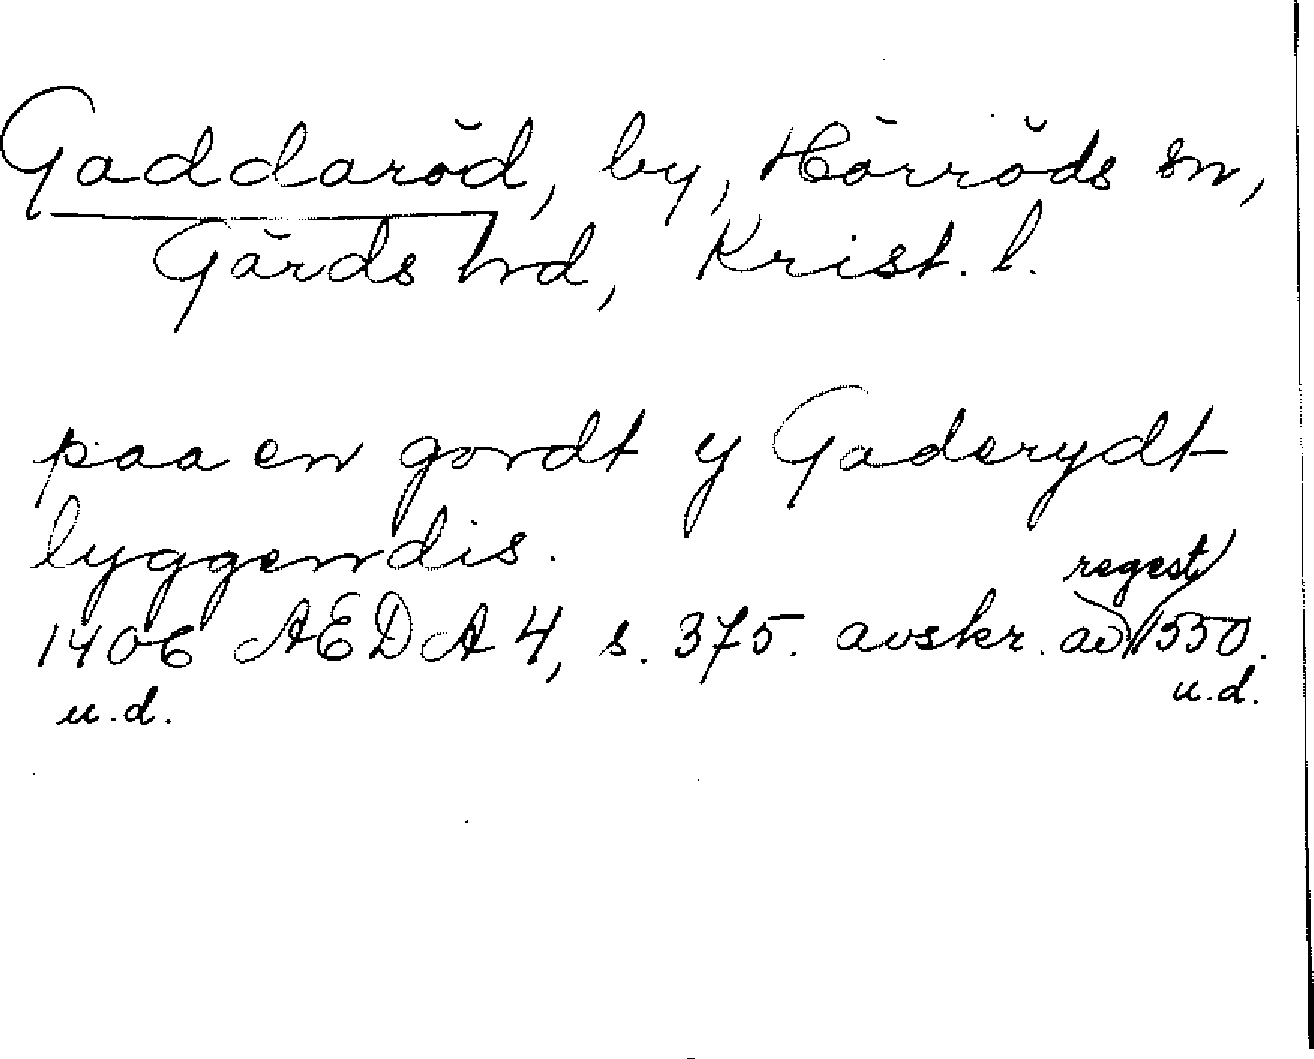 Gaddaröd, by, Hörröds sn,
Gärds hrd, Krist. l.
paa en gordt y Gaderydt
lyggendis.
regest
1406 AEDA 4, s. 375. avskr. av 1550.
u.d. u.d.